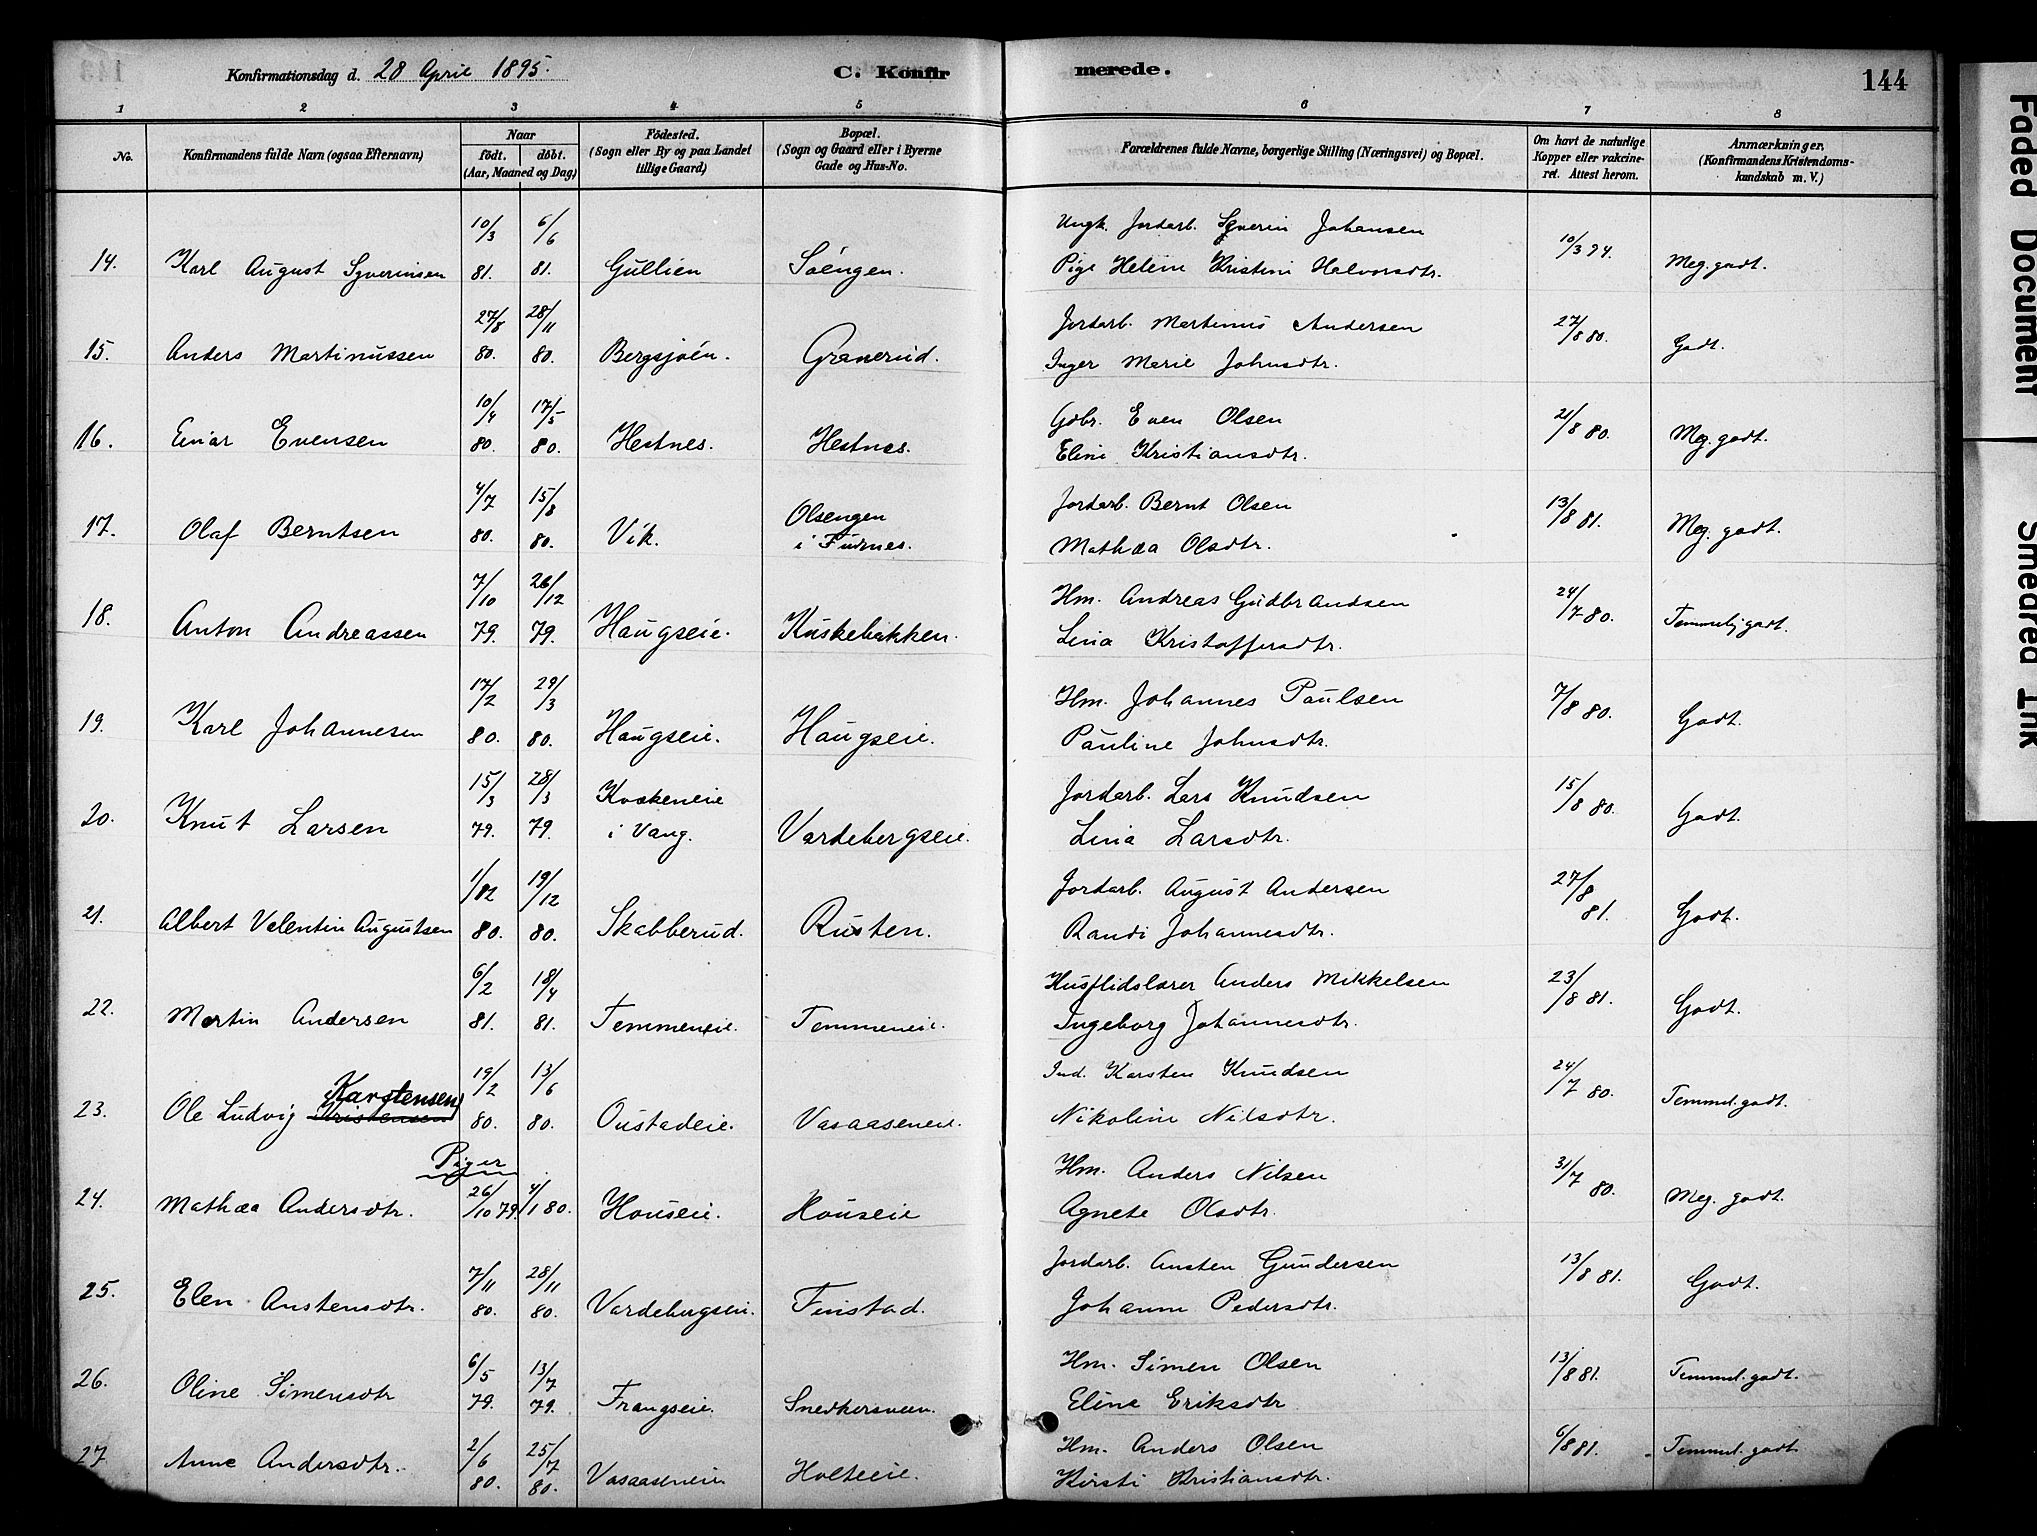 Konfirmationsdag d. 28 April 1895.
C. Konfirmerede.
144
1 2 3 4 5 6 7 8
No.
Konfirmandens fulde Navn (ogsaa Efternavn)
Naar
födt. döbt.
(Aar, Maaned og Dag)
Födested.
(Sogn eller By og paa Landet tillige Gaard)
Bopæl.
(Sogn og Gaard eller i Byerne Gade og Hus-No.
Forældrenes fulde Navne, borgerlige Stilling (Næringsvei) og Bopæl.
Om havt de naturlige Kopper eller vakcineret. Attest herom.
Anmærkninger,
(Konfirmandens Kristendomskundskab m. V.)
10/3 6/6 Ungk. Jordarb. Syverin Johansen
14. Karl August Syverinsen 81. 81. Gullien Söengen. Pige Helene Kristine Halvorsdtr. 10/3 94. Meg. godt.
27/8 28/11 Jordarb. Martinus Andersen
15. Anders Martinussen 80. 80. Bergsjöen. Granerud. Inger Marie Johnsdtr. 27/8 80. Godt.
10/4 17/5 Gdbr. Even Olsen
16. Einar Evensen 80. 80. Hestnes. Hestnes. Eline Kristiansdtr. 21/8 80. Meg. godt.
4/7 15/8 Olsengen Jordarb. Bernt Olsen
17. Olaf Berntsen 80. 80. Vik. i Furnes. Mathea Olsdtr. 13/8 81. Meg. godt.
7/10 26/12 Hm. Andreas Gudbrandsen
18. Anton Andreassen 79. 79. Haugseie. Kuskebakken. Lina Kristoffersdtr. 24/7 80. Temmelig godt.
17/2 29/3 Hm. Johannes Paulsen
19. Karl Johannesen 80. 80. Haugseie. Haugseie. Pauline Johnsdtr. 7/8 80. Godt.
15/3 28/3 Kvækeneie Jordarb. Lars Knudsen
20. Knut Larsen 79. 79. i Vang. Vardebergseie. Lina Larsdtr. 15/8 80. Godt.
1/12 19/12 Jordarb. August Andersen
21. Albert Valentin Augustsen 80. 80. Skabberud. Rusten. Randi Johannesdtr. 27/8 81. Godt.
6/2 18/4 Husflidslærer Anders Mikkelsen
22. Martin Andersen 81. 81. Temmeneie. Temmeneie. Ingeborg Johannesdtr. 23/8 81. Godt.
Karstensen 19/2 13/6 Ind. Karsten Knudsen
23. Ole Ludvig Kristensen 80. 80. Oustadeie. Vasaaseneie. Nikoline Nilsdtr. 24/7 80. Temmel. godt.
Piger
Hm. Anders Nilsen
24. Mathea Andersdtr. 26/10 79. 4/1 80. Houseie. Houseie Agnete Olsdtr. 31/7 80. Meg. godt.
7/11 28/11 Jordarb. Austen Gundersen
25. Elen Austensdtr. 80. 80. Vardebergseie. Finstad. Johanne Pedersdtr. 13/8 81. Godt.
6/5 13/7 Hm. Simen Olsen
26. Oline Simensdtr 79. 79. Frangseie. Snedkersveen. Eline Eriksdtr. 13/8 81. Temmel. godt.
2/6 25/7 Hm. Anders Olsen
27 Anne Andersdtr. 80. 80. Vasaaseneie Holteeie. Kirsti Kristiansdtr. 6/8 81. Temmel. godt
Faded Document
Smeared Ink